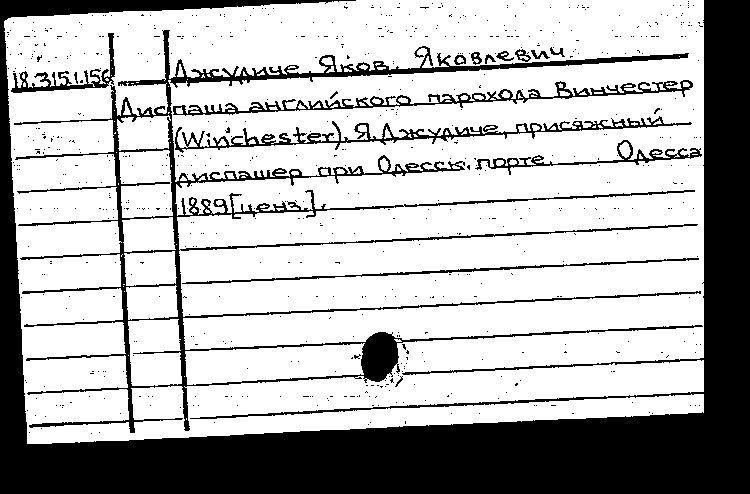 18.315.1.156
Джудиче, Яков Яковлевич
Диспаша английского парохода Винчестер
(Winchester). Я. Джудиче, присяжный
диспашер при Одесск. порте. Одесса
1889 [ценз.].